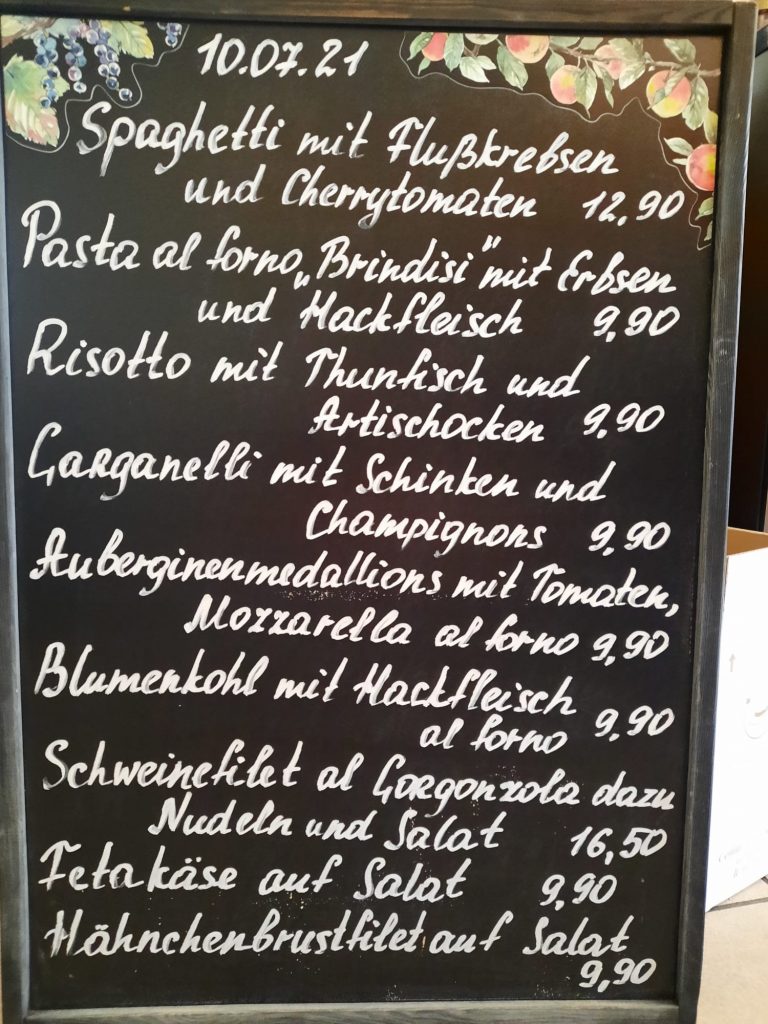 10.07.21
Spaghetti mit Flußkrebsen
und Cherrytomaten 12,90
Pasta al forno „Brindisi" mit Erbsen
und Hackfleisch 9,90
Risotto mit Thunfisch und
Artischocken 9,90
Garganelli mit Schinken und
Champignons 9,90
Auberginenmedallions mit Tomaten,
Mozzarella al forno 9,90
Blumenkohl mit Hackfleisch
al forno 9,90
Schweinefilet al Gorgonzola dazu
Nudeln und Salat 16,50
Fetakäse auf Salat 9,90
Hähnchenbrustfilet auf Salat
9,90